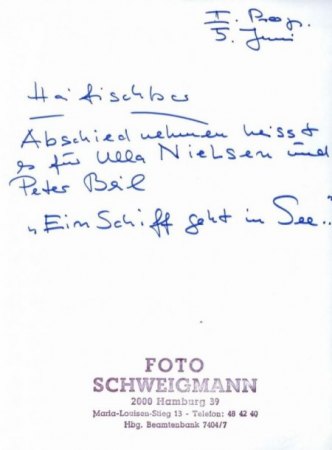 I. Prog.
5. Juni
Haifischbar
Abschied nehmen heisst
es für Ulla Nielsen und
Peter Beil
„Ein Schiff geht in See..."
FOTO
SCHWEIGMANN
2000 Hamburg 39
Maria-Louisen-Stieg 13 - Telefon: 48 42 40
Hbg. Beamtenbank 7404/7